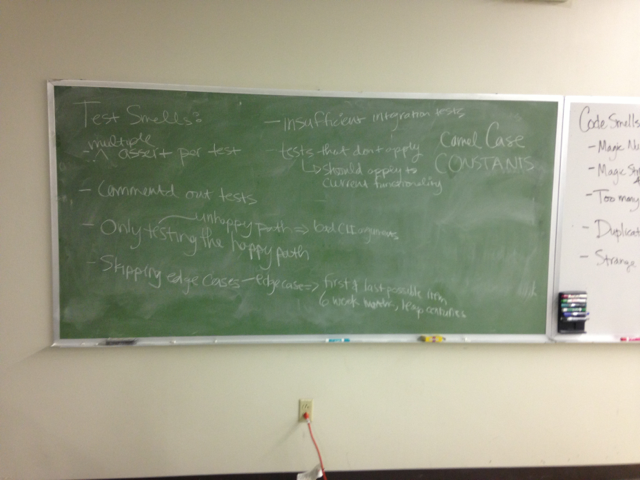 Test Smells:
multiple
assert per test
- Commented out tests
- Only testing the happy path
unhappy path => bad arguments
- Skipping edge cases - edge case => first & last possible item
6 week months, leap centuries
- insufficient integration tests
- tests that don't apply
should apply to
current functionality
Camel Case
CONSTANTS
Code Smells
- Magic Nu
- Magic St
- Too many
- Duplicat
- Strange